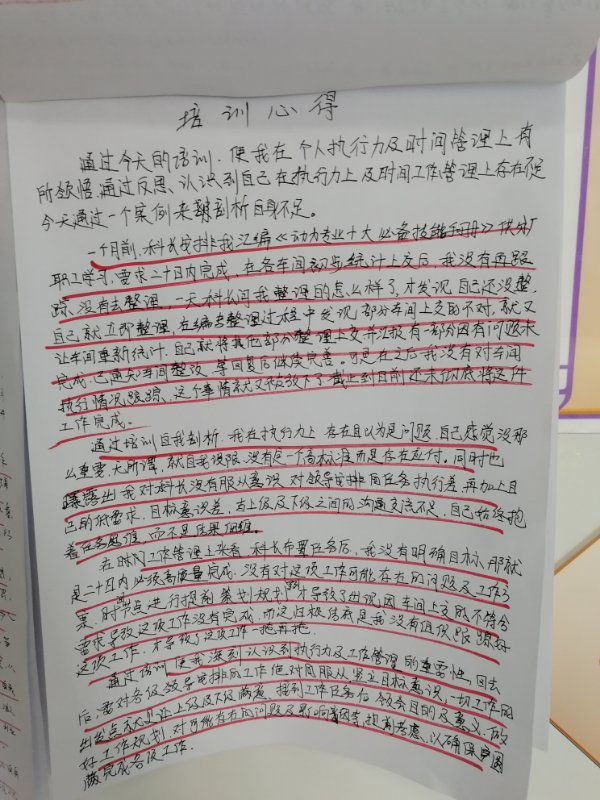 培训心得
通过今天的培训，使我在个人执行力及时间管理上有
所领悟，通过反思，认识到自己在执行力上及时间工作管理上存在不足
今天通过一个案例来剖析自身不足。
一个月前，科长安排我汇编《动力专业十大必备技能手册》供分厂
职工学习，要求二十日内完成，在各车间初步统计上交后，我没有再跟
踪，没有去整理，一天科长问我整理的怎么样了，才发现自己还没整，
自己就立即整理，在编写整理过程中发现部分车间上交的不对，就又
让车间重新统计，自己就将其他部分整理上交并汇报有一部分因有问题未
完成，已通知车间整改，等回复后继续完善。可是在之后我没有对车间
执行情况跟踪，这个事情就又被放下了，截止到目前还未彻底将这件
工作完成。
通过培训自我剖析，我在执行力上，存在自以为是问题，自己感觉没那
么重要，无所谓，就自我设限，没有定一个高标准而是存在应付。同时也
暴露出我对科长没有服从意识，对领导安排的任务执行差，再加上自
己的低要求，目标意识差，与上级及下级之间的沟通交流不足，自己始终抱
着任务思维，而不是结果思维。
在时间工作管理上来看，科长布置任务后，我没有明确目标，那就
是二十日内必须高质量完成，没有对这项工作可能存在的问题及工作步
骤、时间节点进行提前策划规划，才导致了出现因车间上交的不符合
要求导致这项工作没有完成，而这归根结底是我没有组织跟踪好
这项工作，才导致了这项工作一拖再拖。
通过培训，使我深刻认识到执行力及工作管理的重要性，回去
后，要对各级领导安排的工作绝对的服从，树立目标意识，一切工作的
出发点就是让上级及下级满意，接到工作任务后领会目的及意义，做
好工作规划，对可能存在的问题及影响因素提前考虑，以确保圆
满完成各项工作。